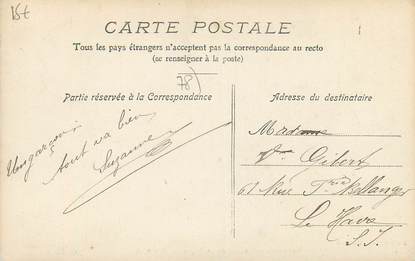 15€
CARTE POSTALE
Tous les pays étrangers n'acceptent pas la correspondance au recto
(se renseigner à la poste)
78
Partie réservée à la Correspondance
Adresse du destinataire
Un garçon
tout va bien
Suzanne
Madame
Vve Gibert
61 Rue Frie Bellanger
Le Havre
S. I.